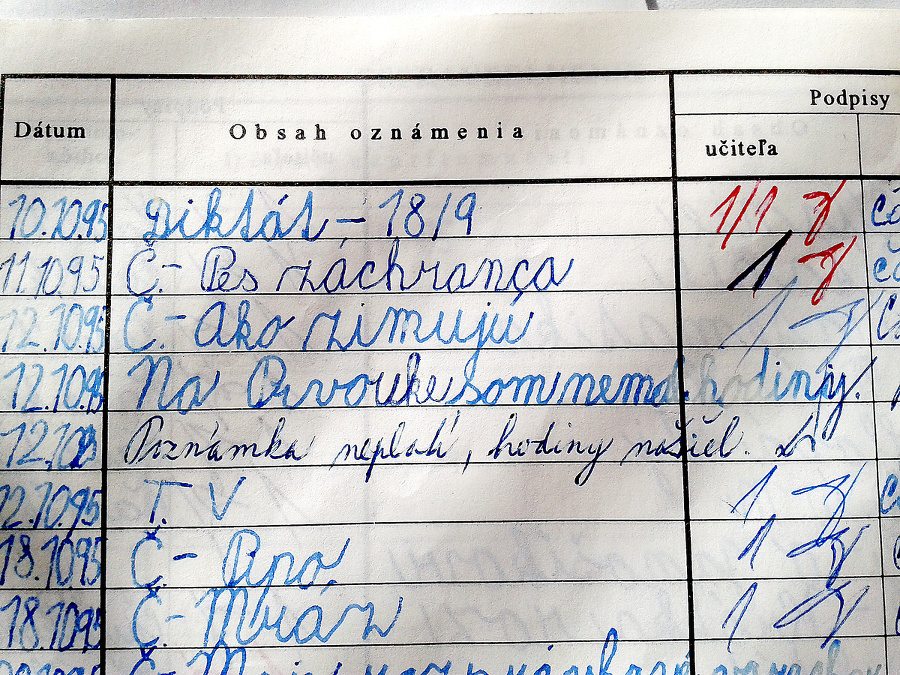 Podpisy
Dátum Obsah oznámenia učiteľa
10.10.95 Diktát - 18/9 1/1
11.10.95 Č.- Pes záchranca 1
12.10.95 Č.- Ako zimujú 1
12.10.95 Na Prvouke som nemal hodiny.
12.10.95 Poznámka neplatí, hodiny našiel.
12.10.95 T. V 1
18.10.95 Č.- Pipa. 1
18.1095 Č.- Mráz 1